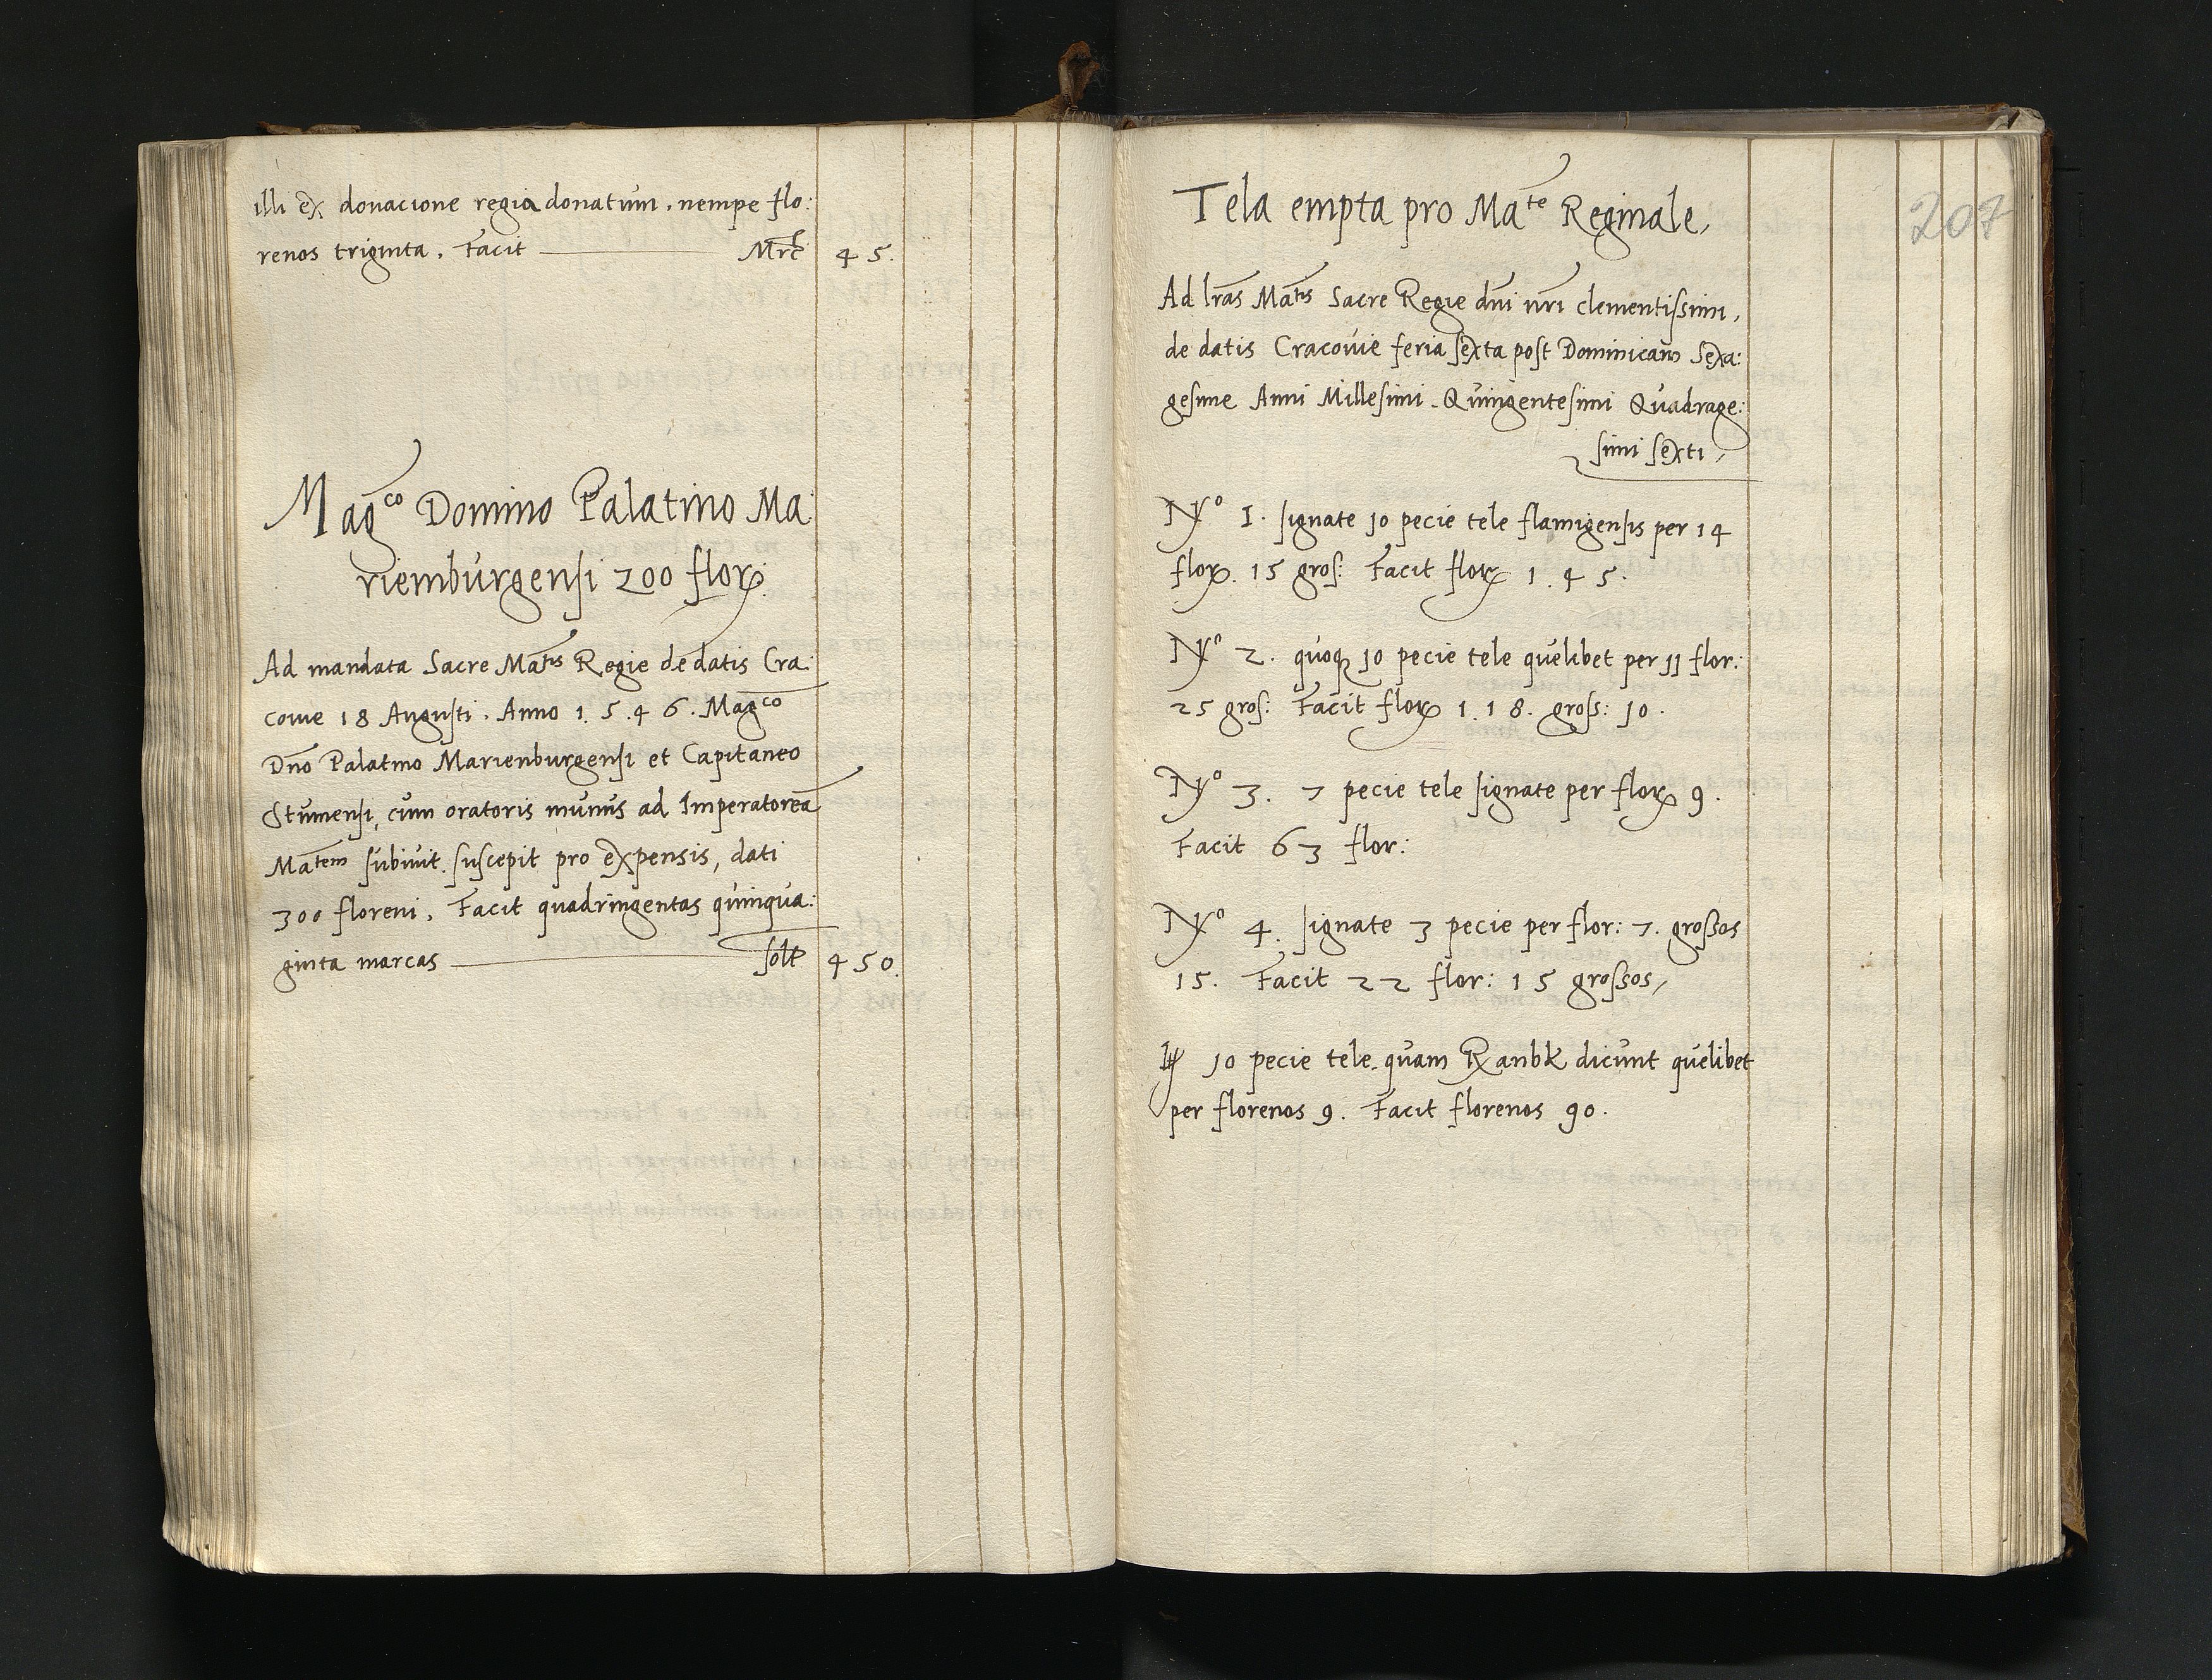 illi ex donacione regia donatum, nempe flo:
renos triginta. Facit Mrc 45.
Mag^co Domino Palatino Ma:
riemburgensi 200 flor.
Ad mandata Sacre Ma^tis Regie de datis Cra:
covie 18 Augusti. Anno 1.5.4 6. Mag^co
Dno Palatino Marienburgensi et Capitaneo
Stumensi, cum oratoris munus ad Imperatorea
Ma^tem subivit. suscepit pro expensis, dati
300 floreni. Facit quadringentas quinqua:
ginta marcas solt 450.
207
Tela empta pro Ma^te Reginale,
Ad lras Ma^tis Sacre Regie dni nri clementissimi,
de datis Cracovie feria sexta post Dominicam Sexa:
gesime Anni Millesimi. Quingentesimi Quadrage:
simi sexti,
N^o 1. signate 10 pecie tele flamigensis per 14
flor. 15 gros: Facit flor 1.4 5.
N^o 2. quoq 10 pecie tele quelibet per 11 flor:
25 gros: Facit flor 1.1 8. gross: 10.
N^o 3. 7 pecie tele signate per flor 9.
Facit 63 flor:
N^o 4. signate 3 pecie per flor: 7. grossos
15. Facit 22 flor: 15 grossos,
10 pecie tele quam Ranbk dicunt quelibet
per florenos 9. Facit florenos 90.